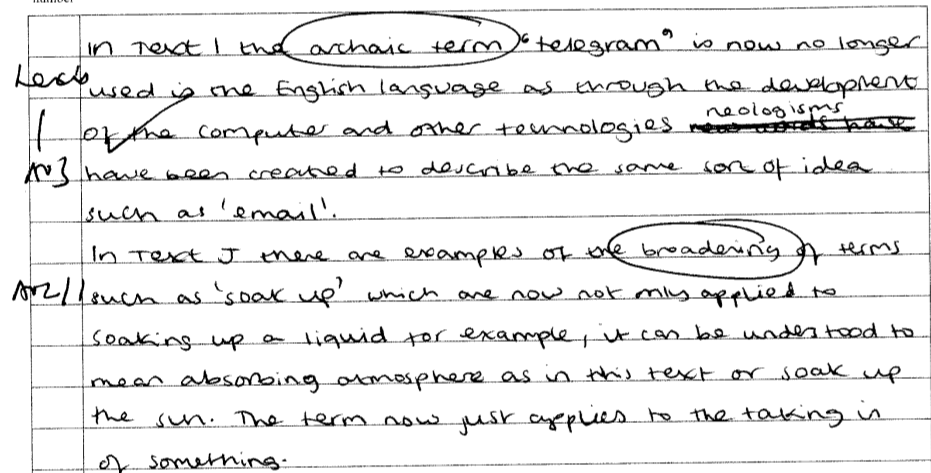 In Text I the archaic term 'telegram' is now no longer
Lexis used is the English language as through the development
of the computer and other technologies neologisms
have been created to describe the same sort of idea
such as 'email'.
In Text J there are examples of the broadening of terms
such as 'soak up' which are now not only applied to
soaking up a liquid for example, it can be understood to
mean absorbing atmosphere as in this text or soak up
the sun. The term now just applies to the taking in
of something.